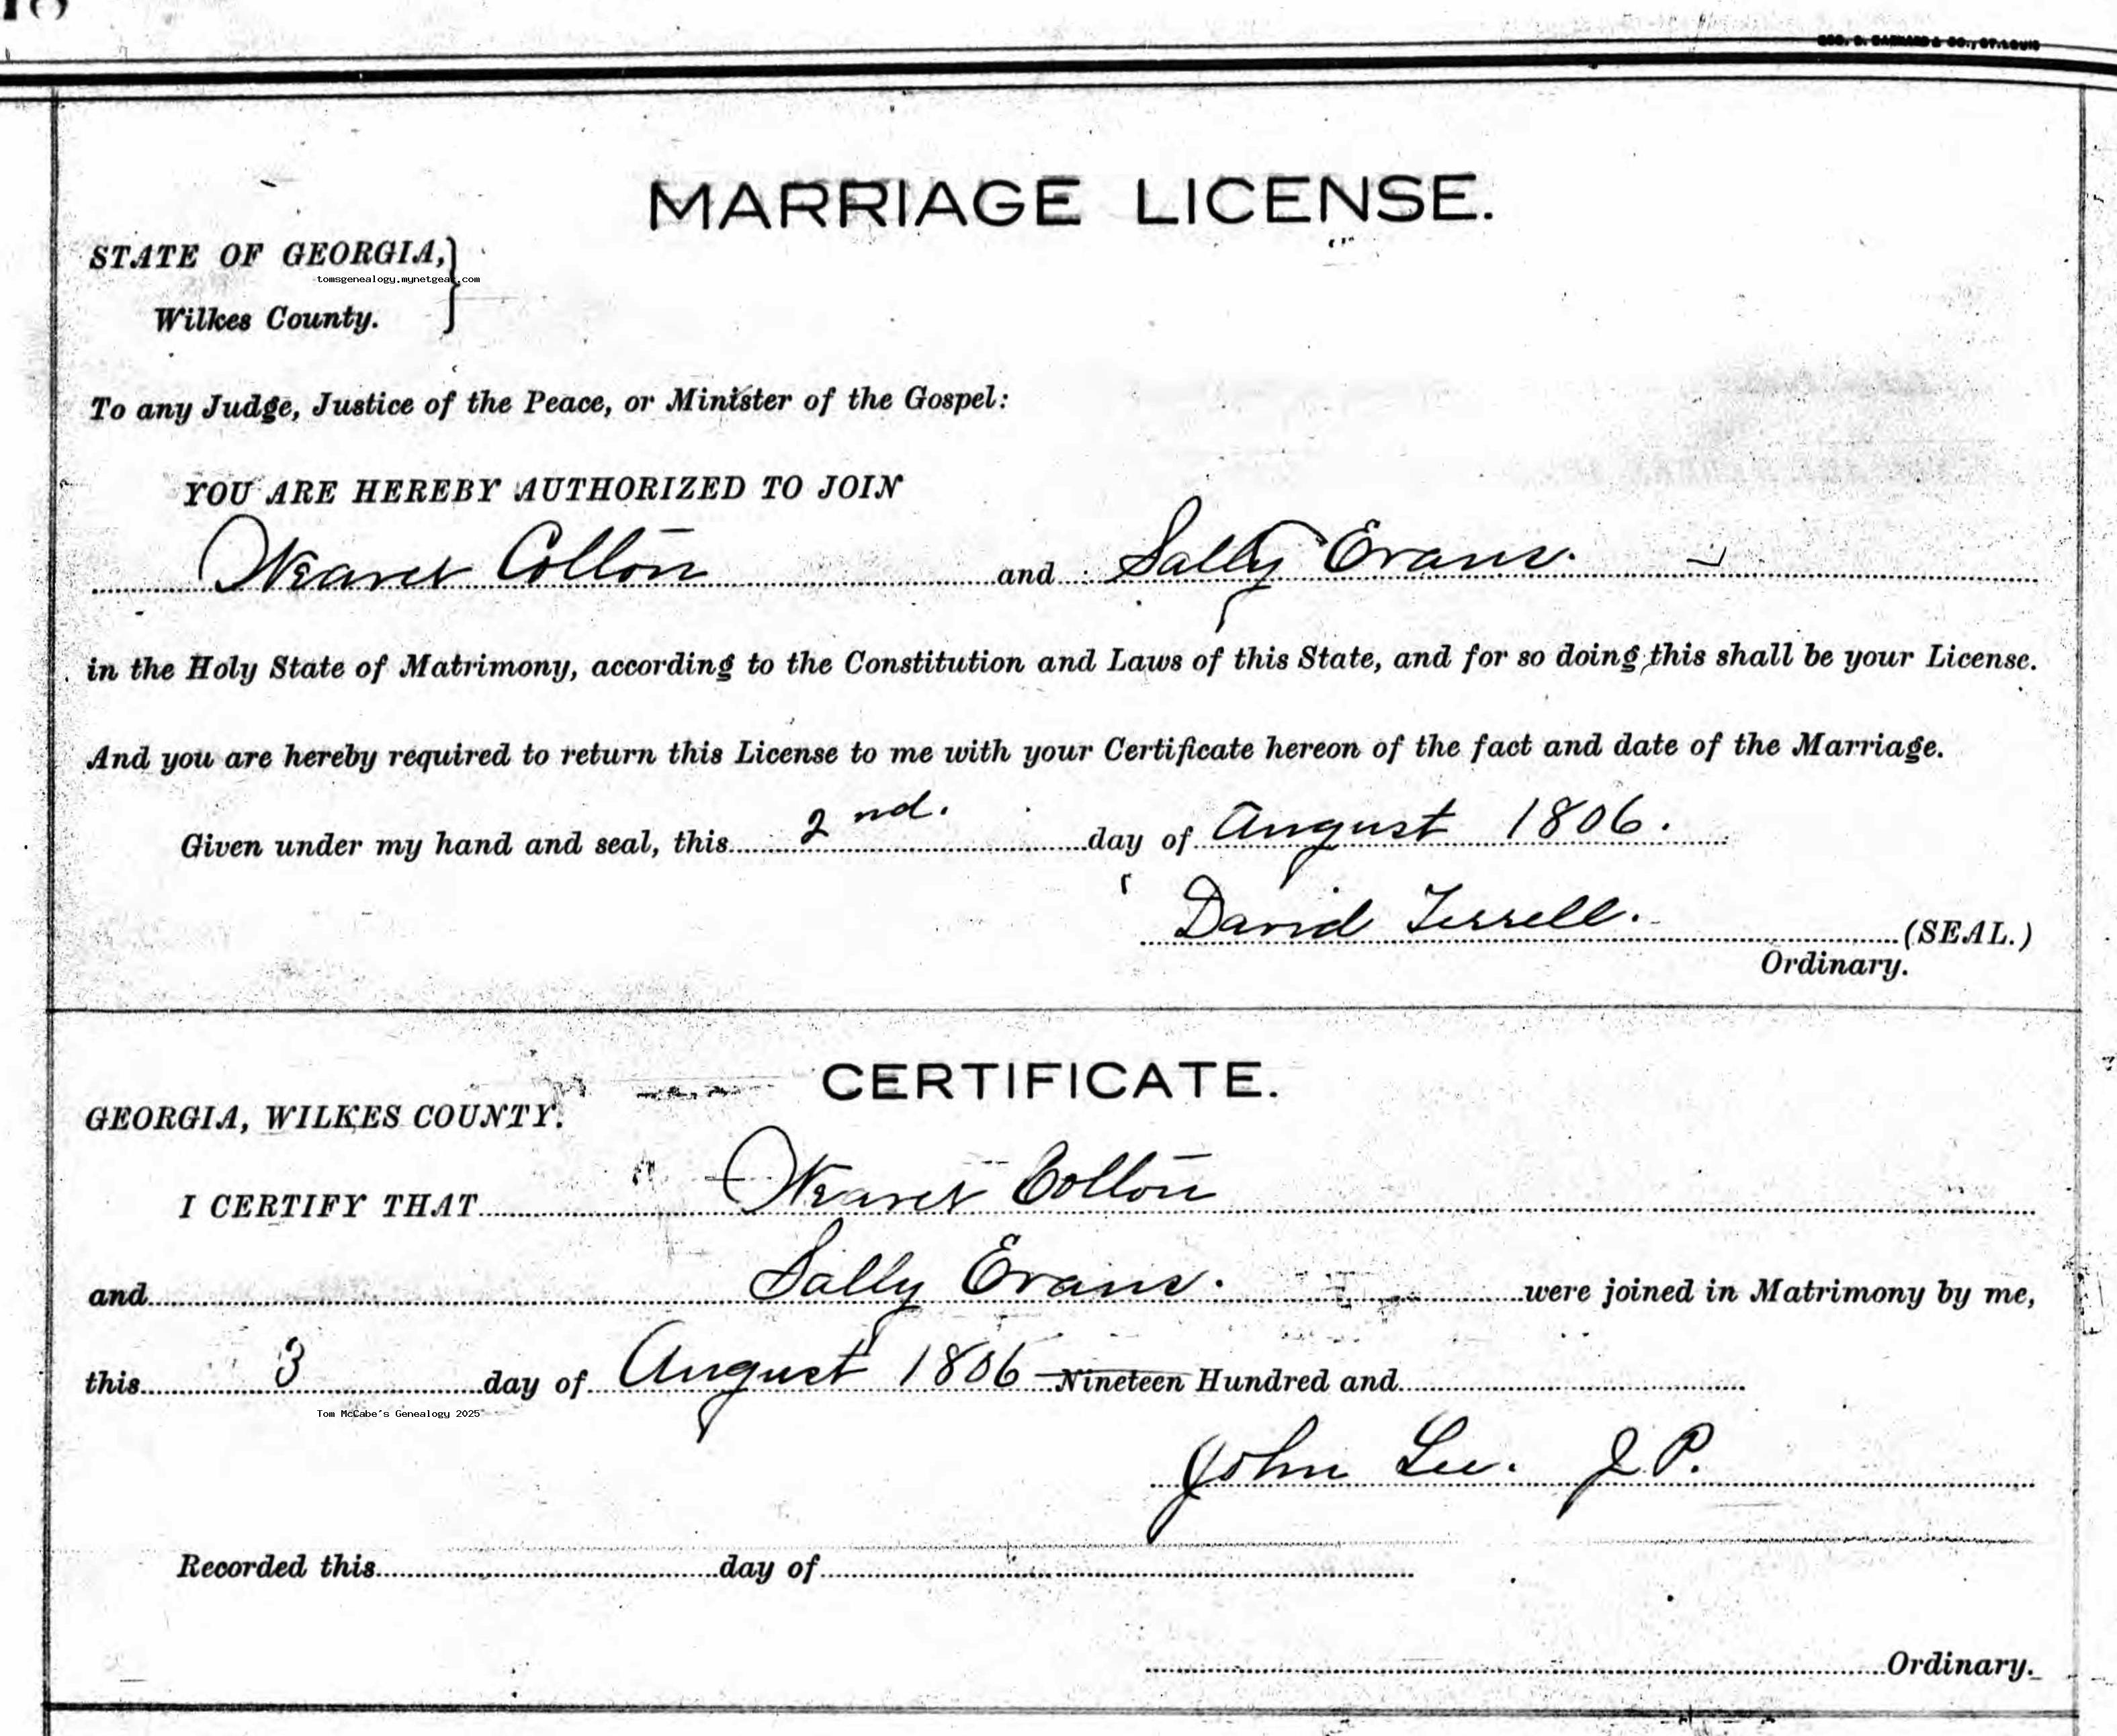 GEO. D. BARNARD & CO., ST. LOUIS
MARRIAGE LICENSE.
STATE OF GEORGIA,
tomsgenealogy.mynetgear.com
Wilkes County.
To any Judge, Justice of the Peace, or Minister of the Gospel:
YOU ARE HEREBY AUTHORIZED TO JOIN
Weaver Cotton and Sally Evans.
in the Holy State of Matrimony, according to the Constitution and Laws of this State, and for so doing this shall be your License.
And you are hereby required to return this License to me with your Certificate hereon of the fact and date of the Marriage.
Given under my hand and seal, this 2nd. day of August 1806.
David Terrell. (SEAL.)
Ordinary.
CERTIFICATE.
GEORGIA, WILKES COUNTY.
I CERTIFY THAT Weaver Cotton
and Sally Evans. were joined in Matrimony by me,
this 3 day of August 1806 Nineteen Hundred and
Tom McCabe's Genealogy 2025
John Lee. J.P.
Recorded this day of
Ordinary.